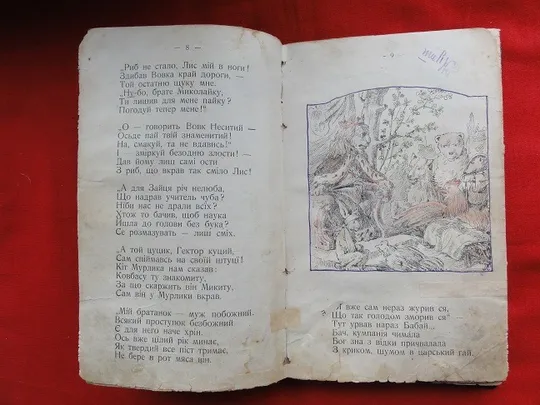 — 8 —
„Риб не стало, Лис мій в ноги!
Здибав Вовка край дороги, —
Той остатню щуку мне.
„Ну-бо, брате Миколайку,
Ти лишив для мене пайку?
Погодуй тепер мене!"
„О — говорить Вовк Неситий —
Осьде пай твій знаменитий!
На, смакуй, та не вдавись!"
І — звіркуй безодню злости! —
Дав йому лиш самі ости
З риб, що вкрав так сміло Лис!
„А для Зайця річ нелюба,
Що надрав учитель чуба?
Ніби нас не драли всіх?
Хтож то бачив, щоб наука
Йшла до голови без бука?
Се розмазувать — лиш сміх.
„А той цуцик, Гектор куций,
Сам спіймавсь на своїй штуці!
Кіт Мурлика нам сказав:
Ковбасу ту знакомиту,
За що скаржить він Микиту,
Сам він у Мурлики вкрав.
„Мій братанок — муж побожний.
Всякий проступок безбожний
Є для него наче хрін.
Ось вже цілий рік минає,
Як твердий все піст тримає,
Не бере в рот мяса він.
— 9 —
А вже сам нераз журив ся:
? Що так голодом зморив ся?
Тут урвав нараз Бабай...
Бач, кумпанія чимала
Бог зна з відки причвалала
З криком, шумом в царський гай.